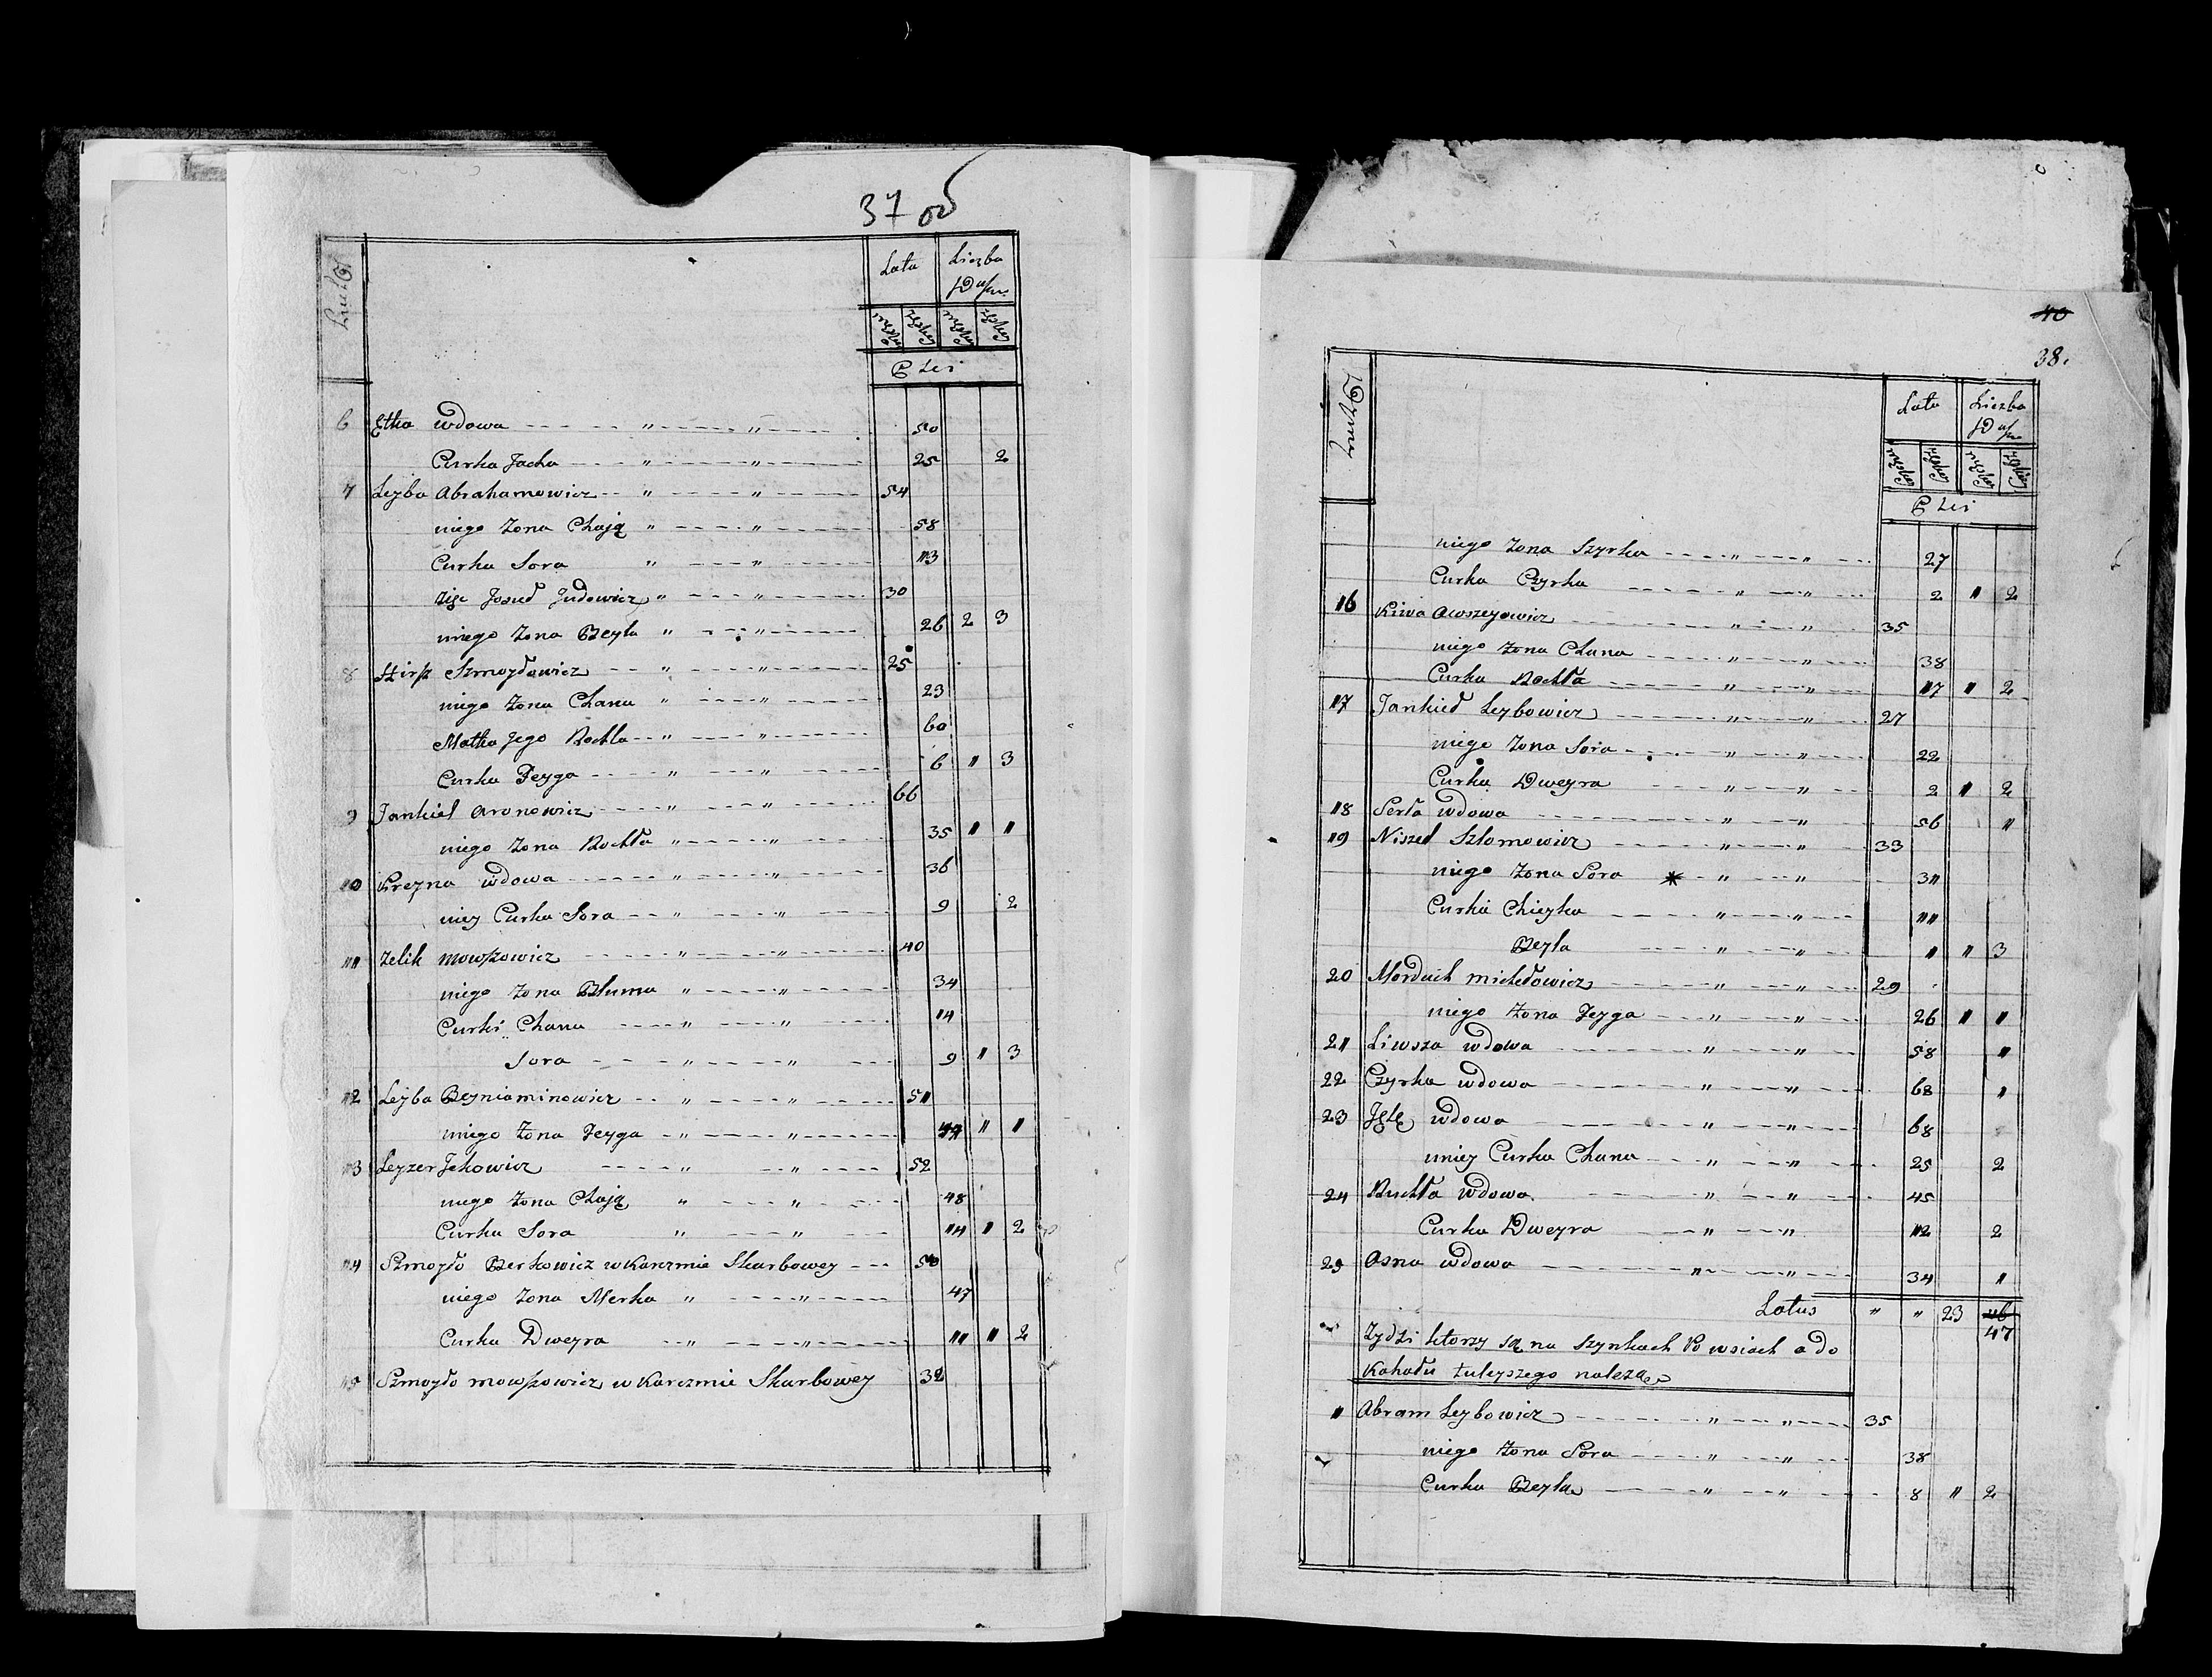 37 об
Lata Liczba Dusz
Męskiey Żeńskiey Męskiey Żeńskiey
Płci
6 Etka wdowa " " 50
Curka Jacha " " 25 2
7 Leyba Abrahamowicz " " 54
niego żona Chają " " 58
Curka Sora " " 13
zięć Josiel Judowicz " " 30
niego żona Beyla " " 26 2 3
8 Hirsz Szmoyłowicz " " 25
niego żona Chana " " 23
Matka Jego Rochla " " 60
Curka Feyga " " 6 " 3
9 Jankiel Aronowicz " " 66
niego żona Rochla " " 35 " 1
10 Kreyna wdowa " " 36
niey Curka Sora " " 9 2
11 Zelik Mowszowicz " " 40
niego żona Bluma " " 34
Curki Chana " " 14
Sora " " 9 " 3
12 Leyba Beyniaminowicz " " 51
niego żona Feyga " " " 1
13 Leyzer Ickowicz " " 52
niego żona Chają " " 48
Curka Sora " " 14 " 2
14 Szmoyło Berkowicz w Karczmie Skarbowey 50
niego żona Merka " " 47
Curka Dweyra " " 11 " 2
15 Szmoyło Mowszowicz w Karczmie Skarbowey 32
40
38.
Lata Liczba Dusz
Męskiey Żeńskiey Męskiey Żeńskiey
Płci
niego żona Szyrka " " 27
Curka Czyrka " " 2 " 2
16 Kiwa Awszeyowicz " " 35
niego żona Chana " " 38
Curka Rochla " " 17 " 2
17 Jankiel Leybowicz " " 27
niego żona Sora " " 22
Curka Dweyra " " 2 " 2
18 Perla wdowa " " 56 1
19 Niszel Szlomowicz " " 33
niego żona Sora * " " 31
Curki Chieyka " " 11
Beyla " " 1 " 3
20 Morduch Michelowicz " " 29
niego żona Feyga " " 26 " 1
21 Liwsza wdowa " " 58 1
22 Czyrka wdowa " " 68 1
23 Itę wdowa " " 68
uniey Curka Chana " " 25 2
24 Ruchla wdowa " " 45
Curka Dweyra " " 12 2
25 Asna wdowa " " 34 1
Latus " " 23 46
47
Żydzi którzy są na szynkach Po wsiach a do
Kahału tuteyszego należą
1 Abram Leybowicz " " 35
niego żona Sora " " 38
Curka Beyla " " 8 " 2